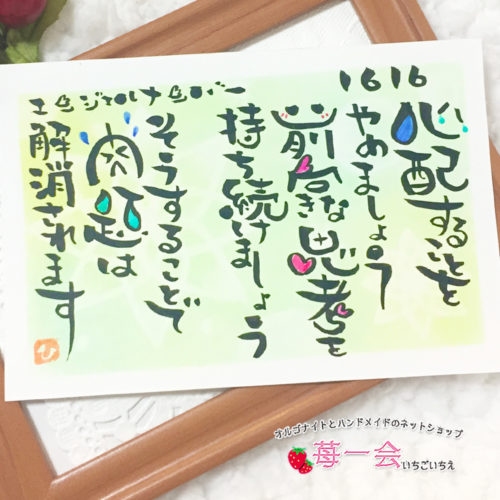 エンジェルナンバー
1616
心配することを
やめましょう
前向きな思考を
持ち続けましょう
そうすることで
問題は
解消されます
ひ
オルゴナイトとハンドメイドのネットショップ
苺一会いちごいちえ